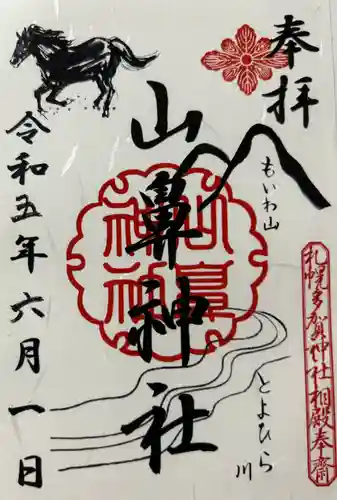 奉拝
もいわ山
札幌多賀神社相殿奉斎
とよひら川
山鼻神社
山鼻神社
令和五年六月一日